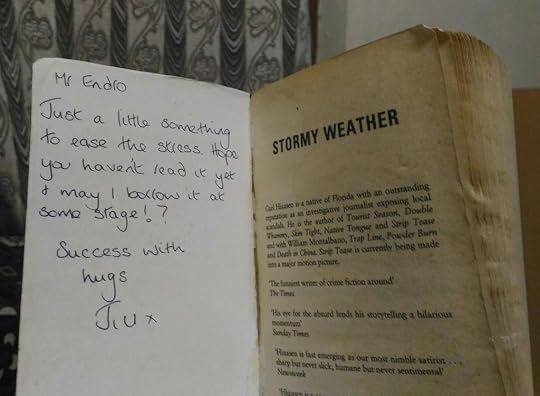 Mr Endro
Just a little something
to ease the stress. Hope
you haven't read it yet
& may I borrow it at
some stage!?
Success with
hugs
x
STORMY WEATHER
Carl Hiaasen is a native of Florida with an outstanding
reputation as an investigative journalist exposing local
scandals. He is the author of Tourist Season, Double
Whammy, Skin Tight, Native Tongue and Strip Tease
and with William Montalbano, Trap Line, Powder Burn
and Death in China. Strip Tease is currently being made
into a major motion picture.
'The funniest writer of crime fiction around'
The Times
'His eye for the absurd lends his storytelling a hilarious
momentum'
Sunday Times
'Hiaasen is fast emerging as our most nimble satirist . . .
sharp but never slick, humane but never sentimental'
Newsweek
'Hiaasen is